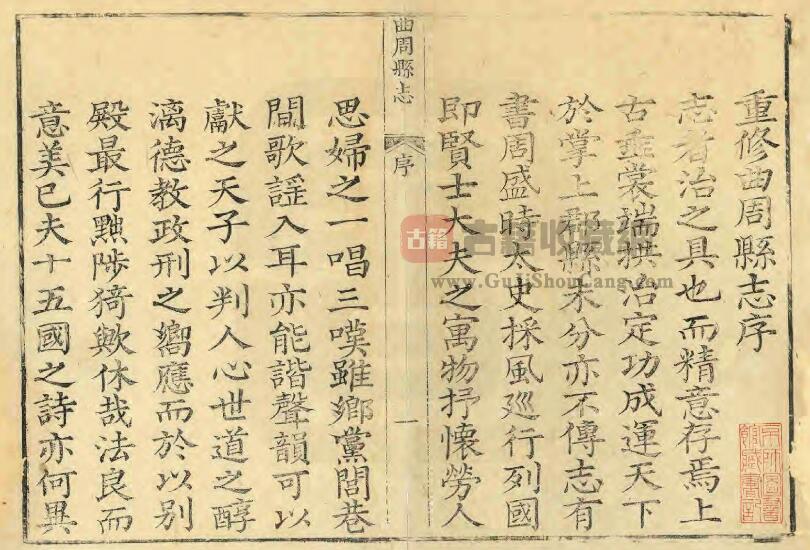 重修曲周縣志序
志者治之具也而精意存焉上
古垂裳端拱治定功成運天下
於掌上郡縣未分亦不傳志有
書周盛時太史採風廵行列國
即賢士大夫之寓物抒懷勞人
曲周縣志
序
一
思婦之一唱三嘆雖鄉黨閭巷
間歌謡入耳亦能諧聲韻可以
獻之天子以判人心世道之醇
漓德教政刑之嚮應而於以别
殿最行黜陟猗歟休哉法良而
意美已夫十五國之詩亦何異
古籍
古籍收藏
www.GuJiShouCang.com